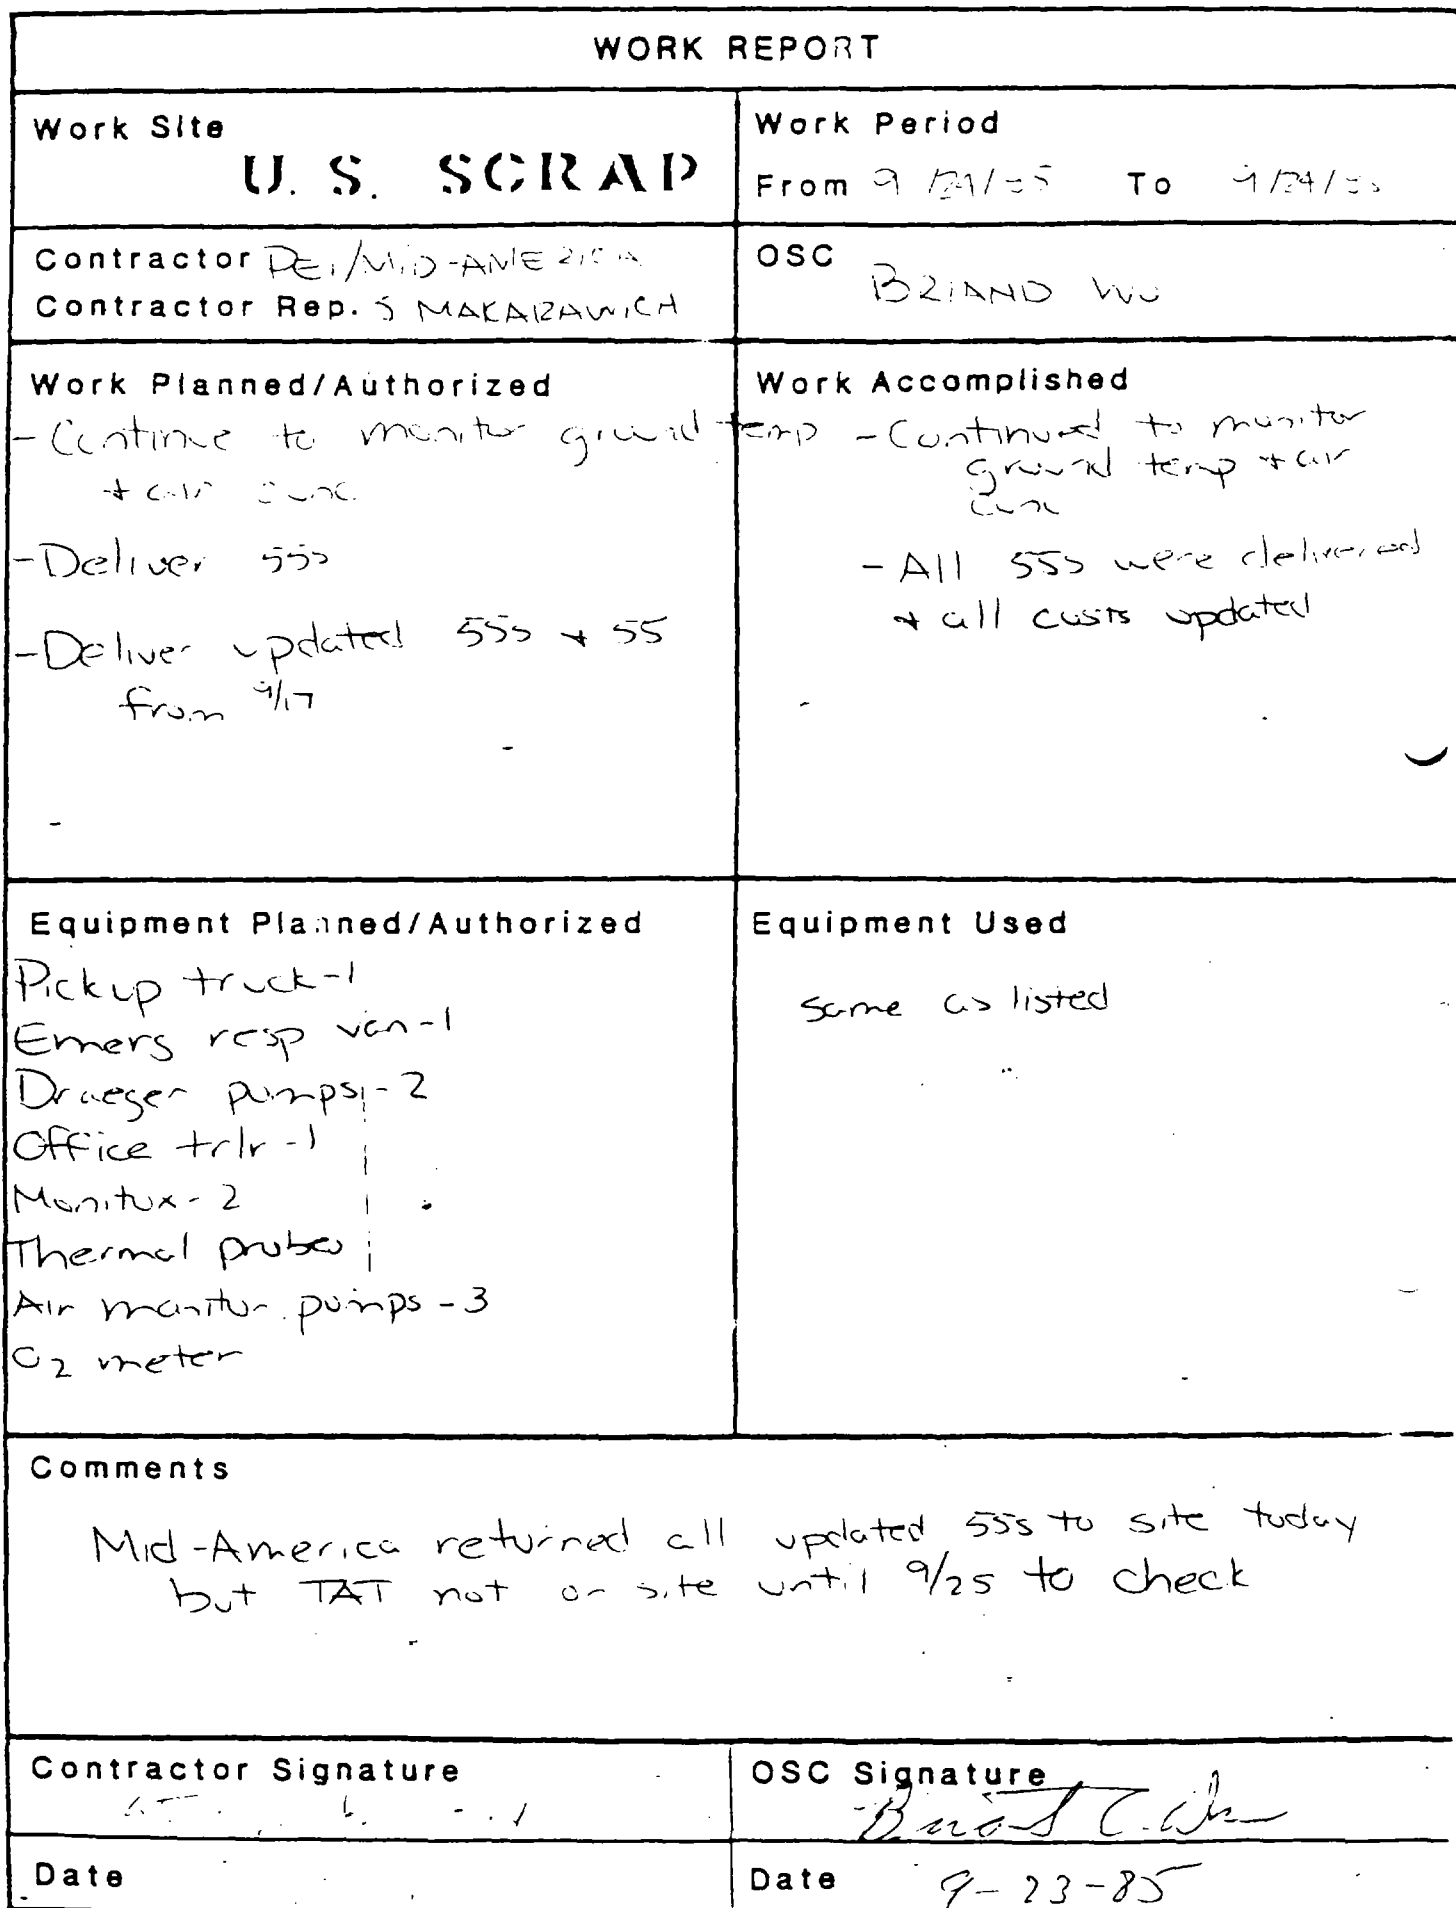 WORK REPORT
Work Site
U. S. SCRAP
Work Period
From 9/24/85 To 9/24/85
Contractor PEI/MID-AMERICA
Contractor Rep. S MAKARAWICH
OSC
BRIAND WU
Work Planned/Authorized
- Continue to monitor ground temp
+ air conc.
- Deliver 55s
- Deliver updated 55s + 55
from 9/17
Work Accomplished
- Continued to monitor
ground temp + air
conc
- All 55s were delivered
+ all costs updated
Equipment Planned/Authorized
Pickup truck-1
Emerg resp van-1
Draeger pumps-2
Office trlr-1
Monitox-2
Thermal probes
Air monitor pumps-3
O2 meter
Equipment Used
same as listed
Comments
Mid-America returned all updated 55s to site today
but TAT not on site until 9/25 to check
Contractor Signature
OSC Signature
Date
Date 9-23-85